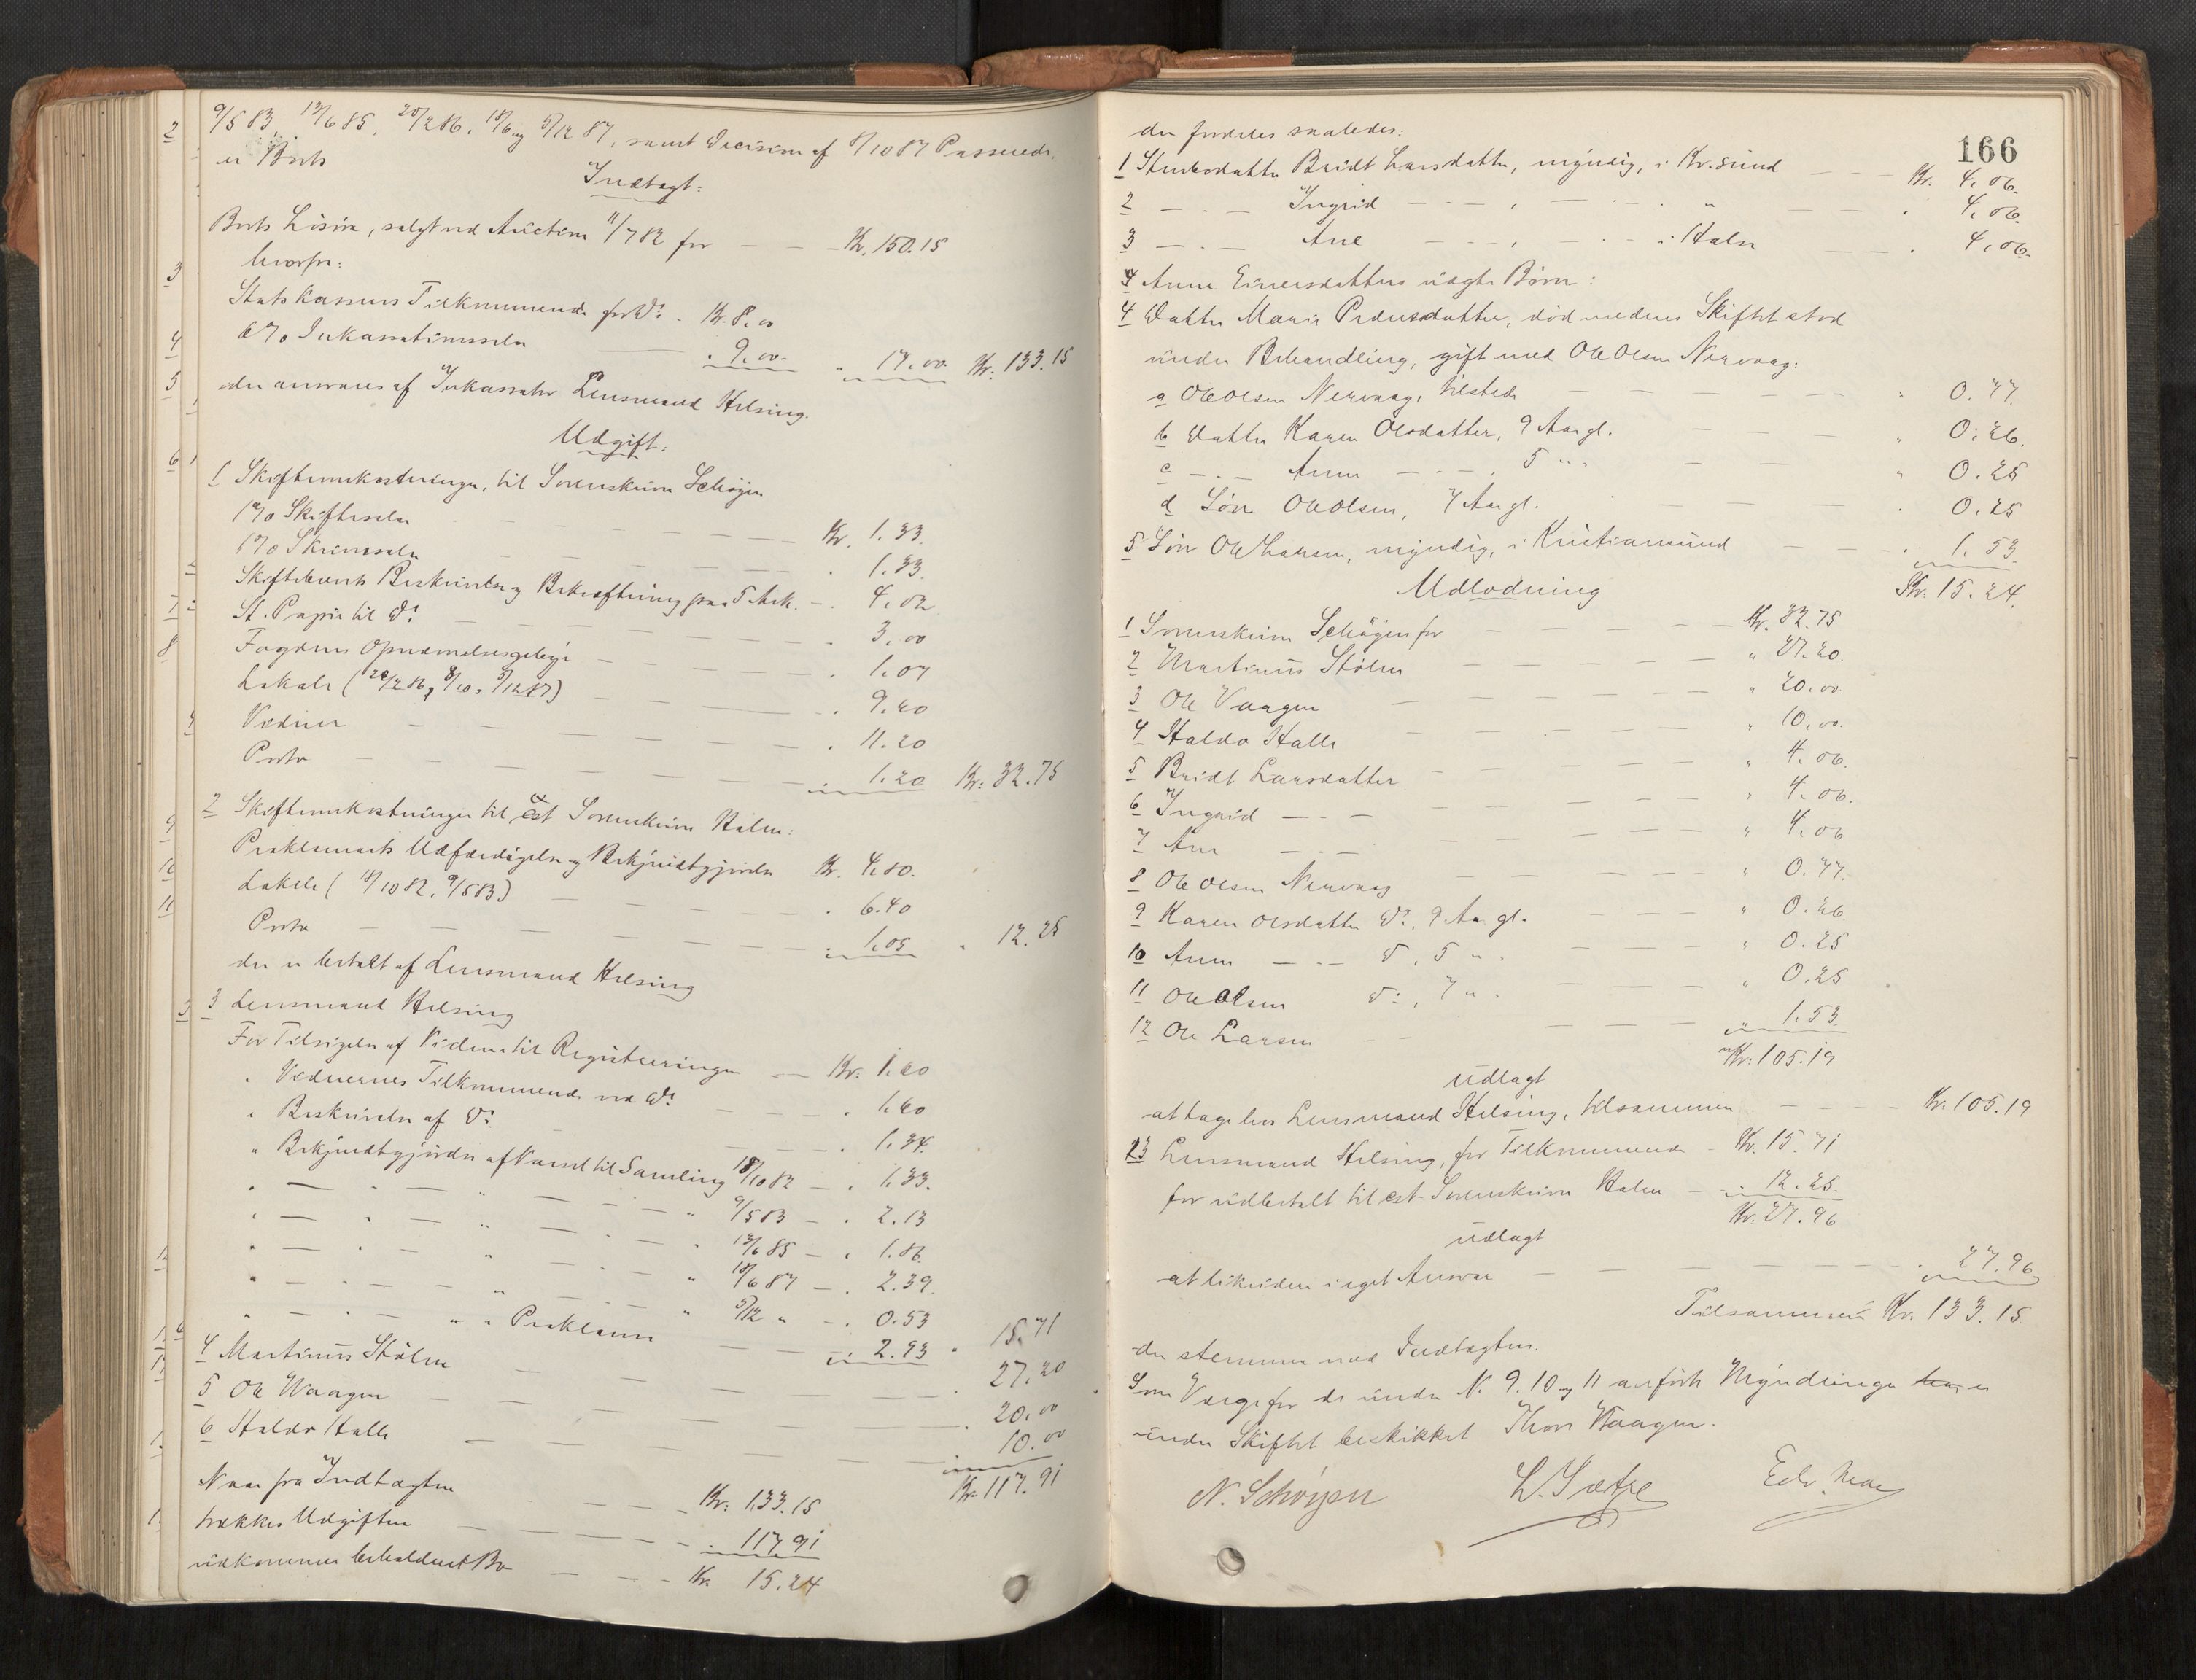 9/5 83, 13/6 85, 20/2 86, 18/6 og 5/12 87, samt Decision af 8/10 87 Passerede
er Boets
Indtægt:
Boets Løsøre, solgt ved Auction 11/7 82 for — — Kr. 150.15
hvorfra:
Statskassens Tilkommende for Do. . Kr. 8.00
6% Inkassationssalær — . 9.00 " 17.00 Kr. 133.15
der ansvares af Inkassator Lensmand Helsing.
Udgift:
1 Skifteomkostninger, til Sorenskriver Schøyen
1% Skiftesalær — Kr. 1.33
1% Skriversalær — . 1.33
Skiftebrevets Beskrivelse og Bekræftning paa 5 Ark. — . 4.02
St. Papir til Do. — . 3.00
Fogdens Opnævnelsesgebyr — . 1.07
Lokale (20/2 86, 8/10, 5/12 87) — . 9.60
Vidner — . 11.20
Porto — . 1.20 Kr. 32.75
2 Skifteomkostninger til cst Sorenskriver Holm:
Proklamaets Udfærdigelse og Bekjendtgjørelse Kr. 4.80.
Lokale (18/10 82, 9/5 83) — . 6.40
Porto — . 1.05 . 12.25
der er betalt af Lensmand Helsing
3 Lensmand Helsing
For Tilsigelse af Vidner til Registreringen — Kr. 1.60
" Vidnernes Tilkommende ved Do. — . 1.60
" Beskrivelse af Do. — . 1.34.
" Bekjendtgjørelse af Varsel til Samling 18/10 82 — . 1.33.
" — " — " — " 9/5 83 — . 2.13
" — " — " — " 13/6 85 — . 1.86
" — " — " — " 18/6 87 — . 2.39.
" — " — " — " 5/12 " — . 0.53
" — " — " " Proklama — . 2.93 . 15.71
4 Martinus Stølen — . 27.20
5 Ole Waagen — . 20.00
6 Haldo Halle — . 10.00
Kr. 117.91
Naar fra Indtægten — Kr. 133.15
trækkes Udgiften — . 117.91
udkommer beholdent Bo — Kr. 15.24
166
der fordeles saaledes:
1 Steddatter Beridt Larsdatter, myndig, i Kr.sund — Kr. 4.06.
2 — " — Ingrid — " — , — " — . " — . 4.06.
3 — " — Ane — " — , — " — i Halsa — . 4.06.
Anne Einersdatters uægte Børn:
4 Datter Marie Pedersdatter, død medens Skiftet stod
under Behandling, gift med Ole Olsen Nervaag:
a Ole Olsen Nervaag, tilstede — " 0.77.
b Datter Karen Olsdatter, 9 Aar gl. — " 0.26.
c — " — Anne — " — , 5 " " — " 0.25
d Søn Ole Olsen, 7 Aar gl. — . 0.25
5 Søn Ole Larsen, myndig, i Kristiansund — . 1.53.
Kr. 15.24.
Udlodning
1 Sorenskriver Schøyen for — Kr. 32.75
2 Martinus Stølen — " 27.20.
3 Ole Vaagen — " 20.00
4 Haldo Halle — " 10.00.
5 Beridt Larsdatter — " 4.06.
6 Ingrid — " — " 4.06.
7 Ane — " — " 4.06
8 Ole Olsen Nervaag — " 0.77.
9 Karen Olsdatter Do., 9 Aar gl. — " 0.26.
10 Anne — " — Do., 5 " " — " 0.25
11 Ole Olsen Do., 7 " " — " 0.25
12 Ole Larsen — " 1.53.
Kr. 105.19
udlagt
at tage hos Lensmand Helsing, tilsammen — Kr. 105.19
13 Lensmand Helsing, for Tilkommende — Kr. 15.71
for udbetalt til cst Sorenskriver Holm — . 12.25.
Kr. 27.96
udlagt
at likvidere i eget Ansvar — . 27.96
Tilsammen Kr. 133.15
der stemmer med Indtægten.
Som Værge for de under N. 9. 10 og 11 anførte Myndlinge er
under Skiftet beskikket Thore Waagen.
N. Schøyen L. Sætre